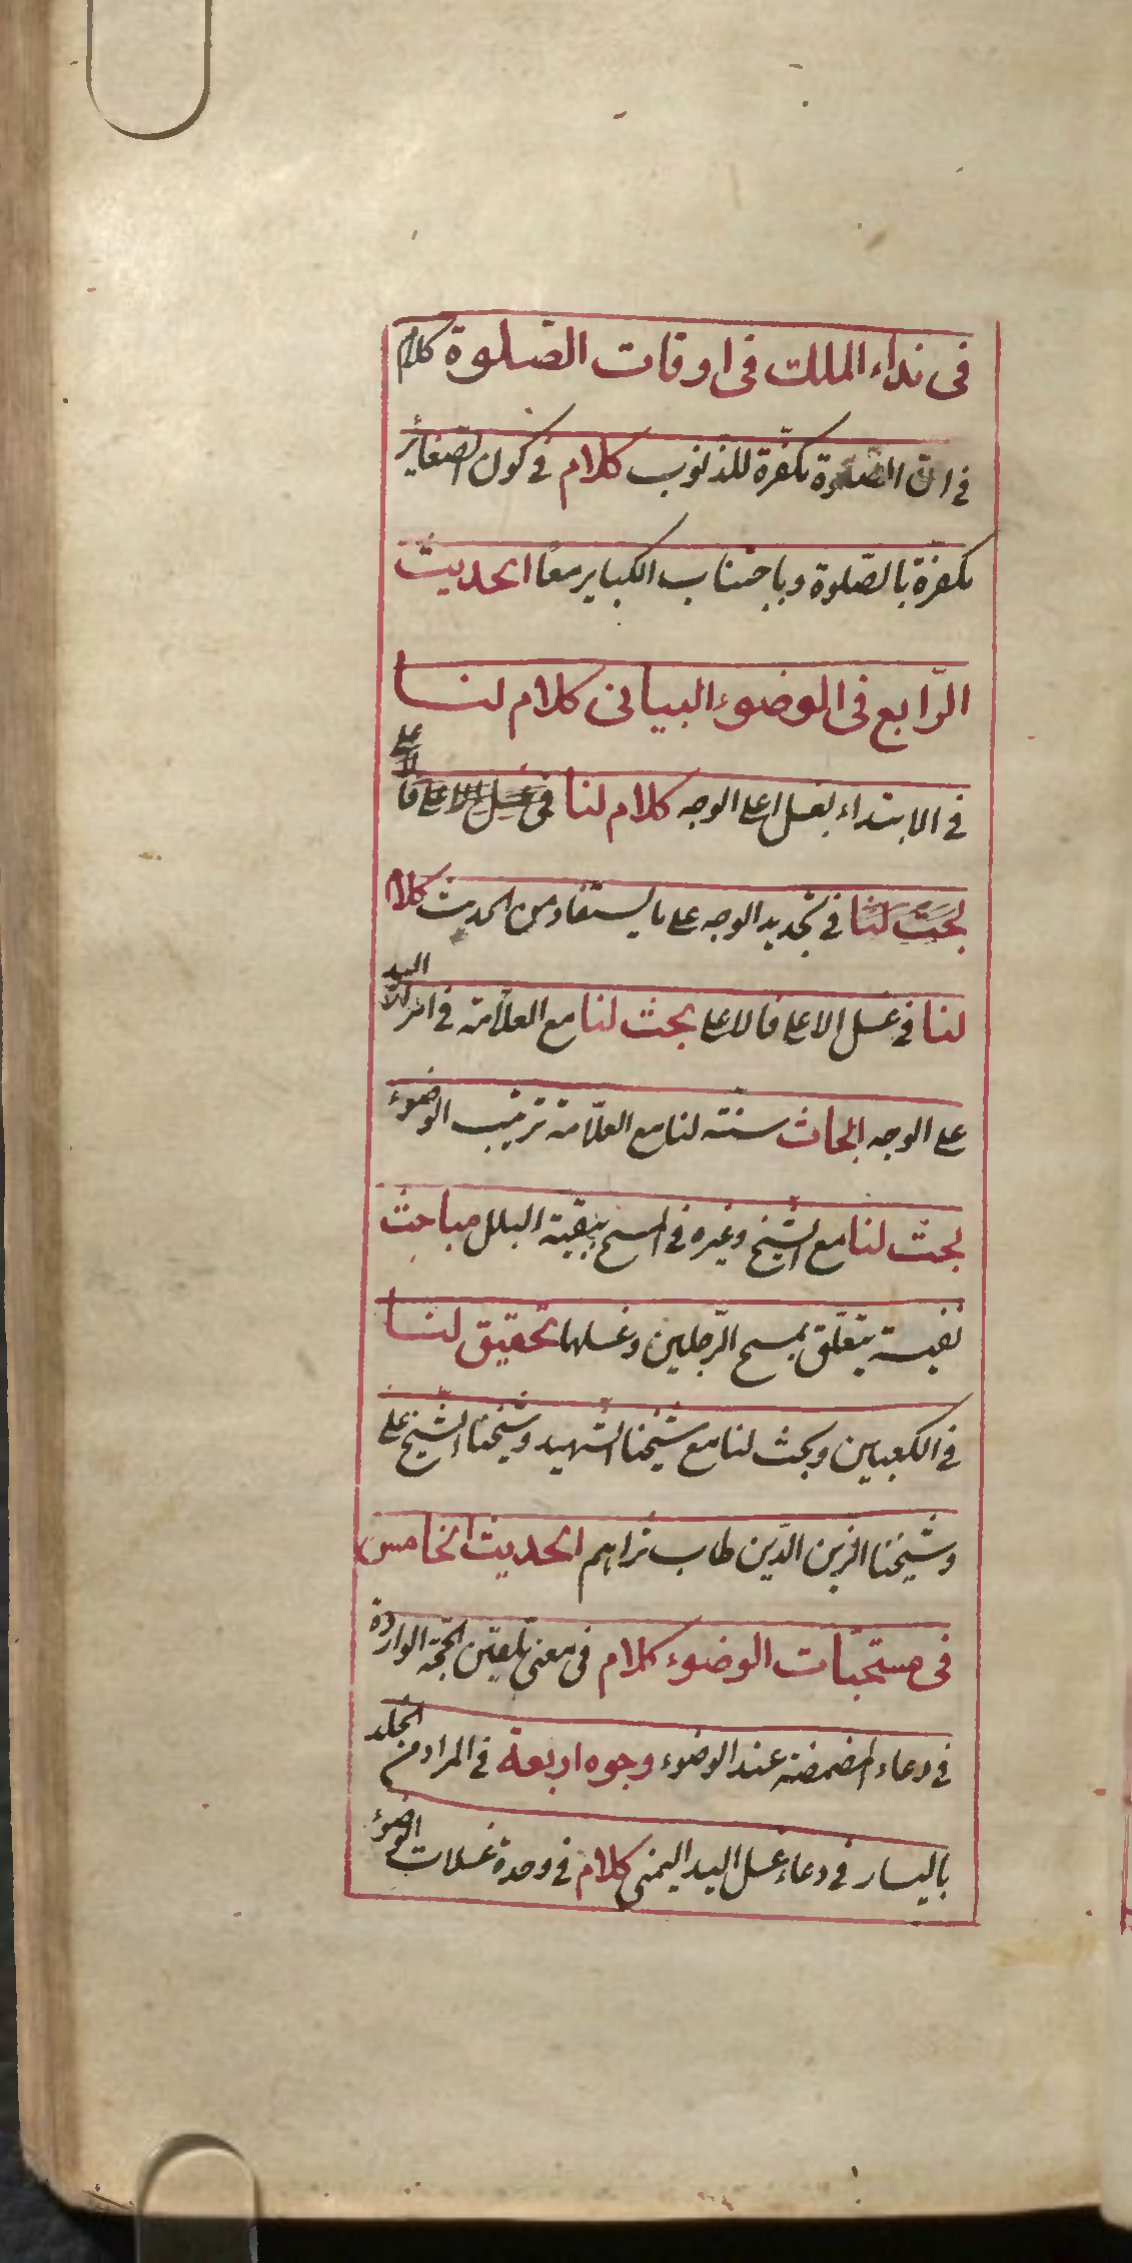 فى نداء الملك فى اوقات الصّلوة كلام
فى انّ الصّلوة مكفّرة للذنوب كلام فى كون الصّغائر
مكفّرة بالصّلوة وباجتناب الكباير معًا الحديث
الرّابع فى الوضوء البيانى كلام لنا
فى الابتداء بغسل اعلى الوجه كلام لنا فى غسل الاعلى فا
بحث لنا فى تحديد الوجه على ما يستفاد من الحديث كلام
لنا فى غسل الاعلى فالاعلى بحث لنا مع العلّامة فى امرار اليد
على الوجه ابحاث ستة لنا مع العلّامة ترتيب الوضوء
بحث لنا مع الشّيخ وغيره فى المسح ببقيّة البلل مباحث
نفيسة يتعلّق بمسح الرّجلين وغسلها تحقيق لنا
فى الكعبين وبحث لنا مع شيخنا الشّهيد وشيخنا الشّيخ على
وشيخنا الزين الدّين طاب ثراهم الحديث الخامس
فى مستحبّات الوضوء كلام فى معنى تلقين الحجّة الواردة
فى دعاء المضمضة عند الوضوء وجوه اربعة فى المراد من الخلد
باليسار فى دعاء غسل اليد اليمنى كلام فى وحدة غسلات الوضوء